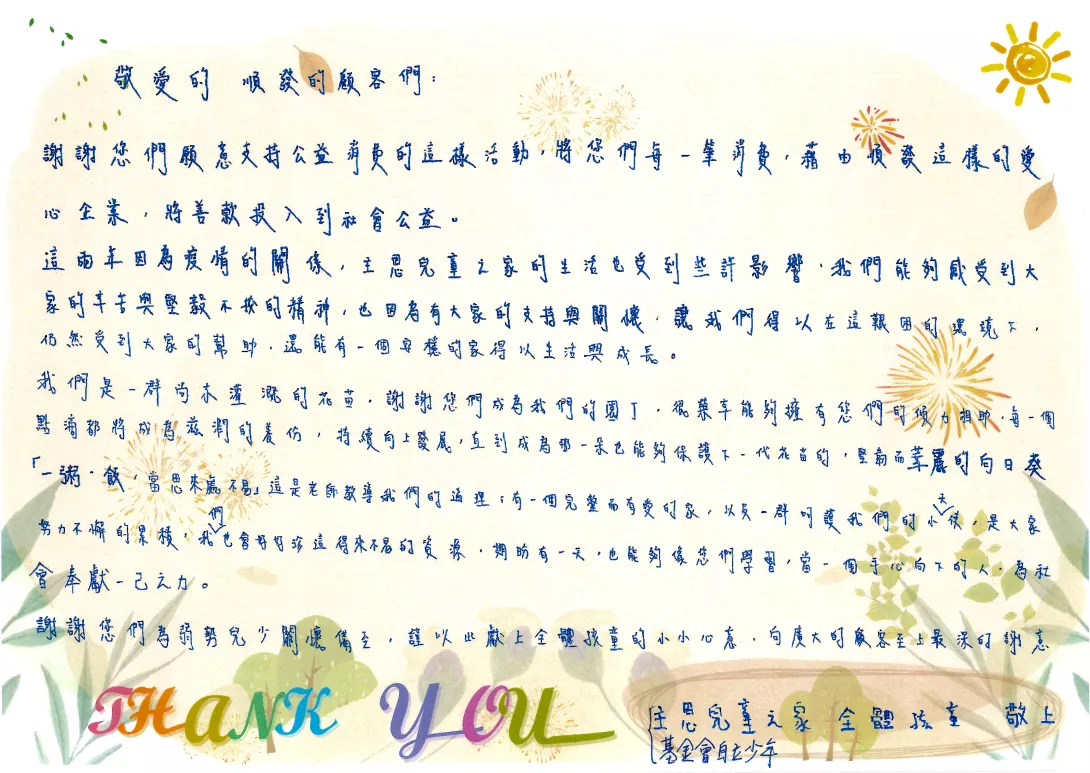 敬愛的 順發的顧客們:
謝謝您們願意支持公益消費的這樣活動,將您們每一筆消費,藉由順發這樣的愛
心企業,將善款投入到社會公益。
這兩年因為疫情的關係,主恩兒童之家的生活也受到些許影響,我們能夠感受到大
家的辛苦與堅毅不拔的精神,也因為有大家的支持與關懷,讓我們得以在這艱困的環境下,
仍然受到大家的幫助,還能有一個安穩的家得以生活與成長。
我們是一群尚未灌溉的花苗,謝謝您們成為我們的園丁,很榮幸能夠擁有您們的傾力相助,每一個
點滴都將成為滋潤的養份,持續向上發展,直到成為那一朵也能夠保護下一代花苗的,堅韌而華麗的向日葵
「一粥一飯,當思來處不易」這是老師教導我們的道理;有一個完整而有愛的家,以及一群呵護我們的小天使,是大家
努力不懈的累積,我們也會好好珍這得來不易的資源,期盼有一天,也能夠像您們學習,當一個手心向下的人,為社
會奉獻一己之力。
謝謝您們為弱勢兒少關懷備至,謹以此獻上全體孩童的小小心意,向廣大的顧客至上最深的謝意
THANK YOU
主恩兒童之家 全體孩童 敬上
基金會自立少年